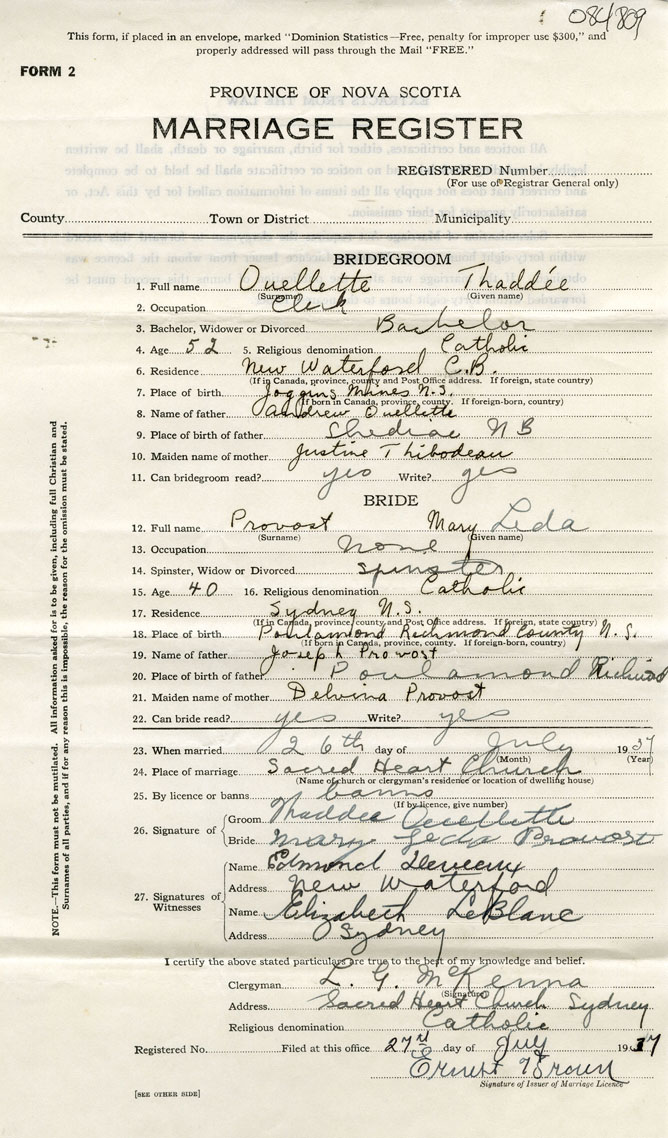 084809
This form, if placed in an envelope, marked "Dominion Statistics—Free, penalty for improper use $300," and
properly addressed will pass through the Mail "FREE."
FORM 2
PROVINCE OF NOVA SCOTIA
MARRIAGE REGISTER
REGISTERED Number
(For use of Registrar General only)
County Town or District Municipality
BRIDEGROOM
1. Full name Ouellette Thaddée
(Surname) (Given name)
2. Occupation Clerk
3. Bachelor, Widower or Divorced Bachelor
4. Age 52 5. Religious denomination Catholic
6. Residence New Waterford C.B.
(If in Canada, province, county and Post Office address. If foreign, state country)
7. Place of birth Joggins Mines N.S.
(If born in Canada, province, county. If foreign-born, country)
8. Name of father Andrew Ouellette
9. Place of birth of father Shediac N B
10. Maiden name of mother Justine Thibodeau
11. Can bridegroom read? yes Write? yes
BRIDE
12. Full name Provost Mary Leda
(Surname) (Given name)
13. Occupation none
14. Spinster, Widow or Divorced spinster
15. Age 40 16. Religious denomination Catholic
17. Residence Sydney N.S.
(If in Canada, province, county and Post Office address. If foreign, state country)
18. Place of birth Poulamond Richmond County N.S.
(If born in Canada, province, county. If foreign-born, country)
19. Name of father Joseph Provost
20. Place of birth of father Poulamond
21. Maiden name of mother Delvina Provost
22. Can bride read? yes Write? yes
23. When married 26th day of July 1937
(Month) (Year)
24. Place of marriage Sacred Heart Church
(Name of church or clergyman's residence or location of dwelling house)
25. By licence or banns banns
(If by licence, give number)
26. Signature of
Groom Thaddee Ouellette
Bride Mary Leda Provost
27. Signatures of
Witnesses
Name Edmond
Address New Waterford
Name Elizabeth LeBlanc
Address Sydney
I certify the above stated particulars are true to the best of my knowledge and belief.
Clergyman L. G. McKenna
(Signature)
Address Sacred Heart Church Sydney
Religious denomination Catholic
Registered No. Filed at this office 27 day of July 1937
Ernest Brown
Signature of Issuer of Marriage Licence
[SEE OTHER SIDE]
NOTE.—This form must not be mutilated. All information asked for is to be given, including full Christian and
Surnames of all parties, and if for any reason this is impossible, the reason for the omission must be stated.